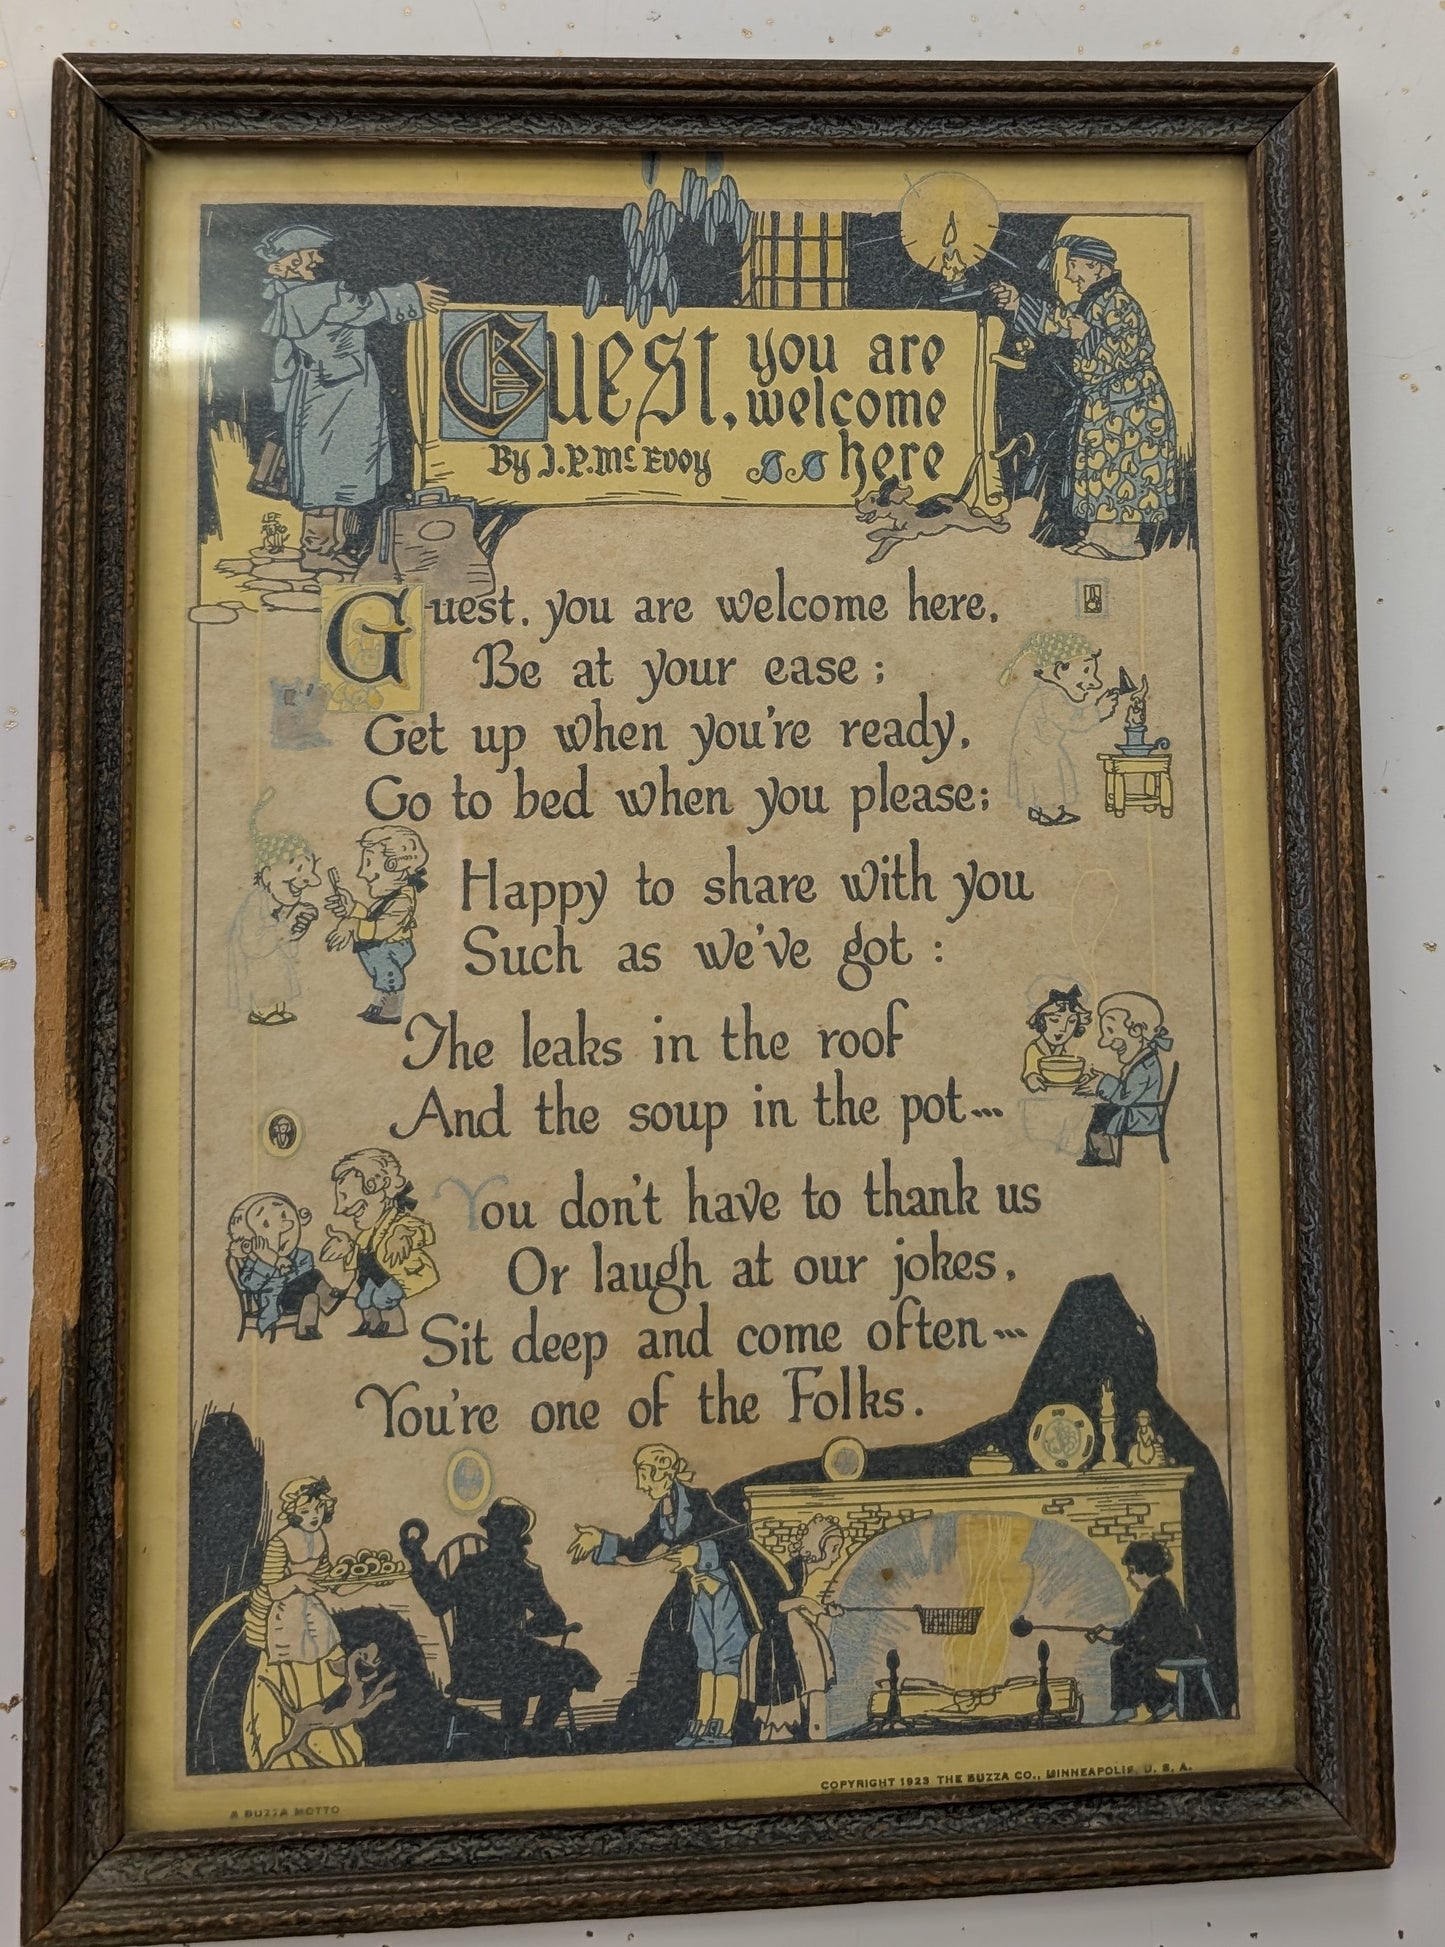 Guest, you are
welcome
By J.P. McEvoy here
LEE
MERO
Guest, you are welcome here,
Be at your ease;
Get up when you're ready,
Go to bed when you please;
Happy to share with you
Such as we've got:
The leaks in the roof
And the soup in the pot...
You don't have to thank us
Or laugh at our jokes,
Sit deep and come often...
You're one of the Folks.
COPYRIGHT 1923 THE BUZZA CO., MINNEAPOLIS, U. S. A.
A BUZZA MOTTO